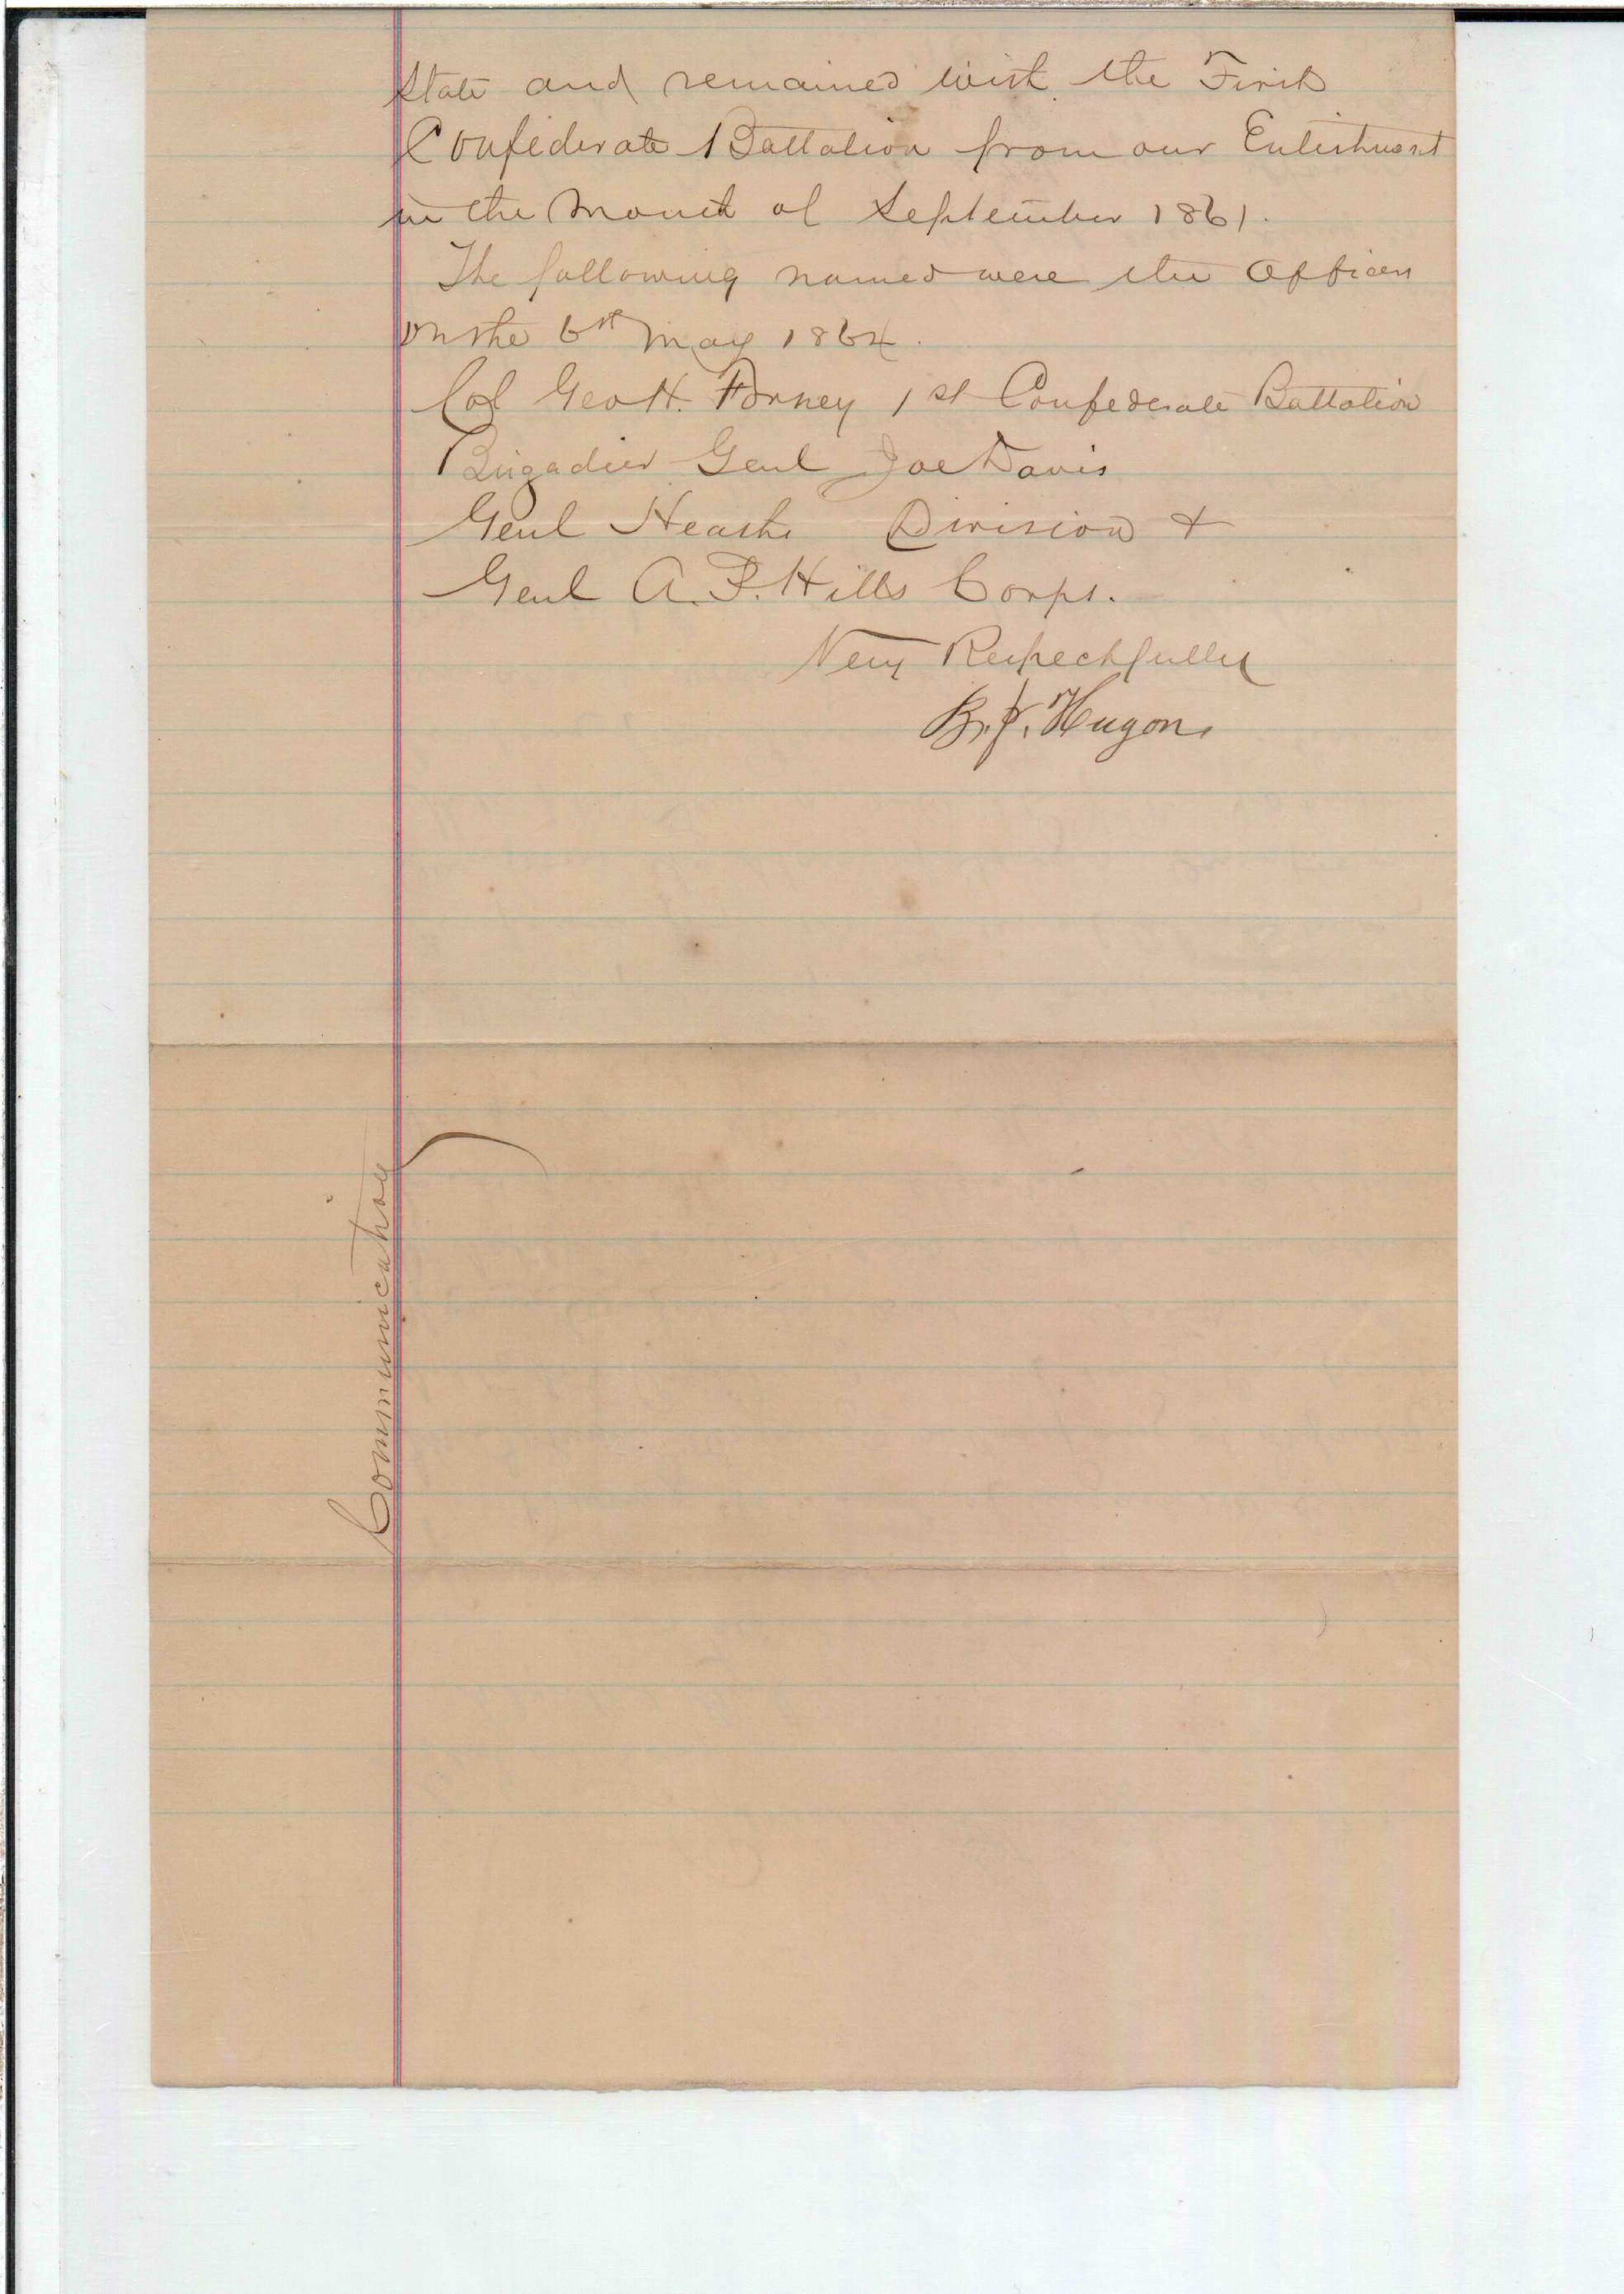 State and remained with the First
Confederate Battalion from our Enlistment
in the Month of September 1861.
The following named were the Officers
on the 6th May 1864.
Col Geo H. Forney 1st Confederate Battalion
Brigadier Genl Joe Davis
Genl Heaths Division &
Genl A. P. Hills Corps.
Very Respectfully
Hugons
Communication